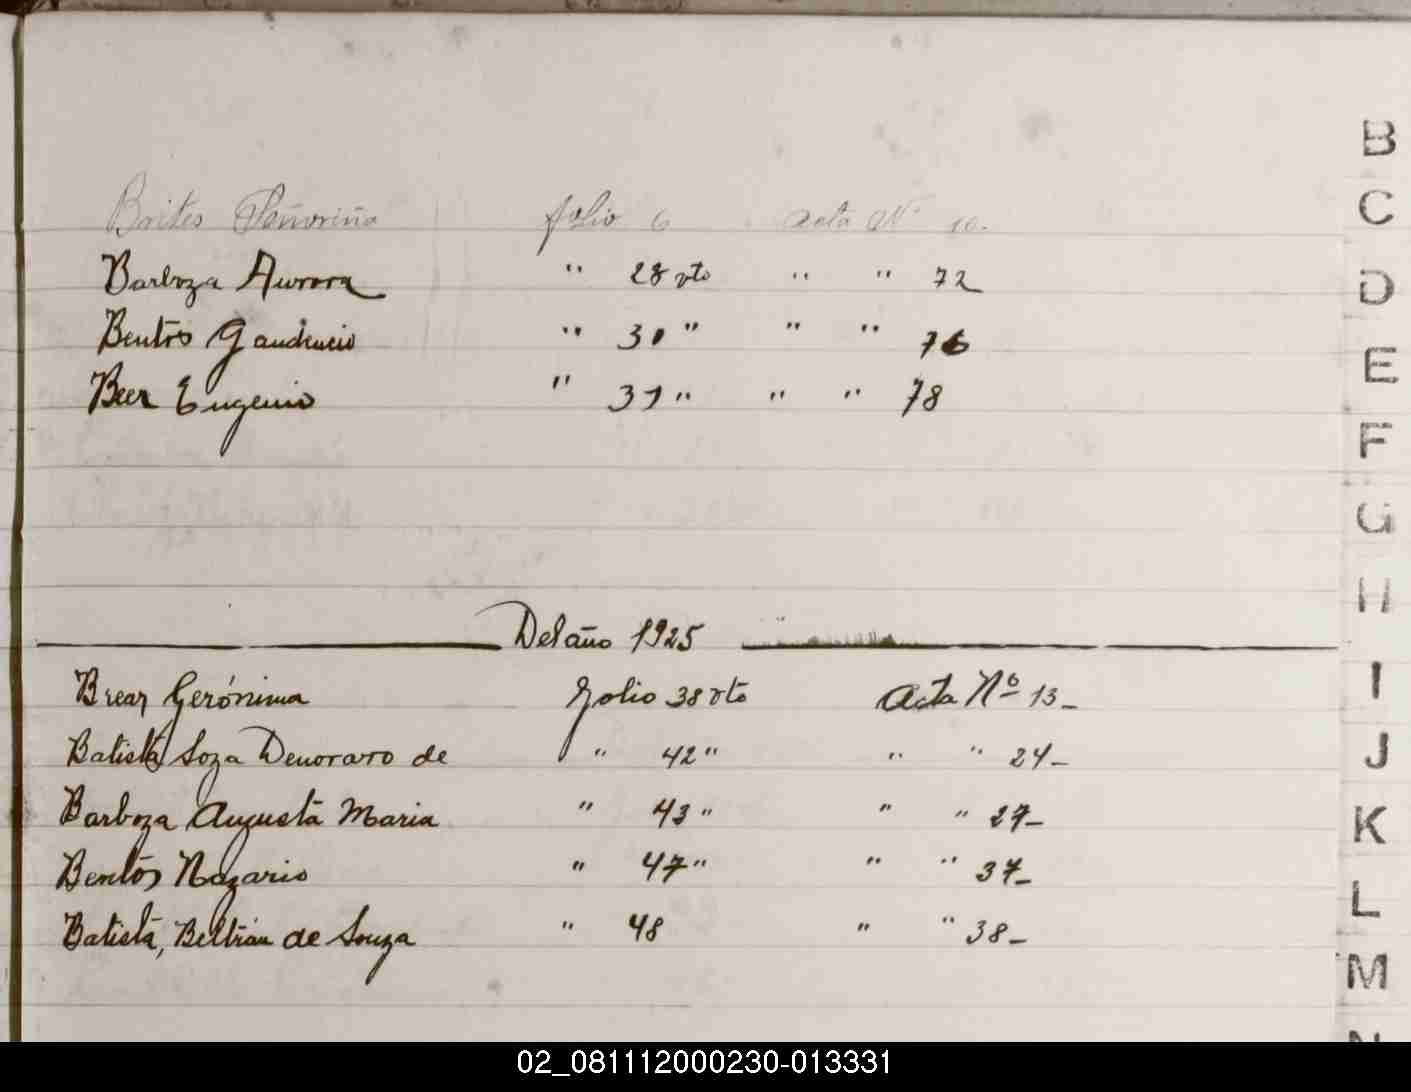 Brites Señoriña folio 6 acta Nº 10.
Barboza Aurora " 28 vto " " 72
Bentos Gaudencio " 30 " " " 76
Beer Eugenio " 31 " " " 78
Del año 1925
Brear Gerónima folio 38 vto Acta Nº 13_
Batista Soza Denoraro de " 42 " " " 24_
Barboza Augusta Maria " 43 " " " 27_
Bentos Nazario " 47 " " " 37_
Batista, Beltrán de Souza " 48 " " 38_
B
C
D
E
F
G
H
I
J
K
L
M
N
02_081112000230-013331